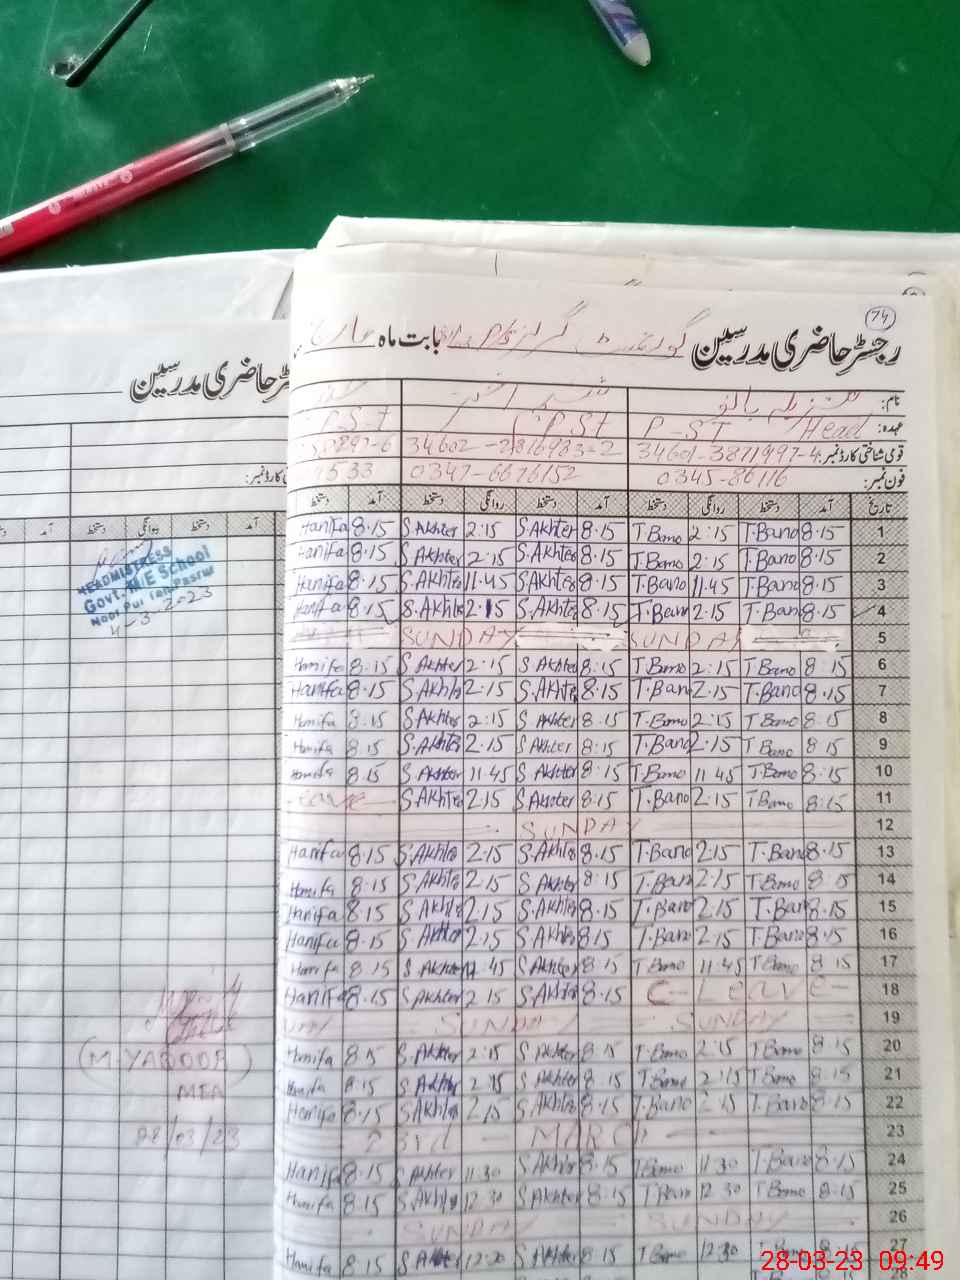 74
رجسٹر حاضری مدرسین گورنمنٹ گرلز P/S بابت ماہ مارچ
رجسٹر حاضری مدرسین
نام: تنزیلہ بانو
عہدہ: P-ST Head PST P-S-T
قومی شناختی کارڈ نمبر: 34601-3871997-4 34602
فون نمبر: 0345-86116 0347-6676152 4533
تاریخ آمد دستخط روانگی دستخط آمد دستخط روانگی دستخط آمد دستخط
1 8.15 T.Bano 2:15 T.Bano 8.15 S.Akhter 2:15 S.Akhter 8.15 Hanifa
2 8.15 T.Bano 2:15 T.Bano 8.15 S.Akhter 2:15 S.Akhter 8.15 Hanifa
3 8.15 T.Bano 11.45 T.Bano 8.15 S.Akhter 11.45 S.Akhter 8.15 Hanifa
4 8.15 T.Bano 2.15 T.Bano 8.15 S.Akhter 2.15 S.Akhter 8.15 Hanifa
5 SUNDAY SUNDAY
6 8:15 T.Bano 2:15 T.Bano 8:15 S.Akhter 2:15 S.Akhter 8:15 Hanifa
7 8.15 T.Bano 2.15 T.Bano 8.15 S.Akhter 2.15 S.Akhter 8.15 Hanifa
8 8:15 T.Bano 2:15 T.Bano 8:15 S.Akhter 2:15 S.Akhter 8.15 Hanifa
9 8.15 T.Bano 2.15 T.Bano 8:15 S.Akhter 2.15 S.Akhter 8.15 Hanifa
10 8:15 T.Bano 11.45 T.Bano 8:15 S.Akhter 11.45 S.Akhter 8.15 Hanifa
11 8:15 T.Bano 2:15 T.Bano 8.15 S.Akhter 2.15 S.Akhter Leave
12 SUNDAY
13 8.15 T.Bano 2.15 T.Bano 8.15 S.Akhter 2.15 S.Akhter 8.15 Hanifa
14 8:15 T.Bano 2:15 T.Bano 8:15 S.Akhter 2.15 S.Akhter 8:15 Hanifa
15 8.15 T.Bano 2.15 T.Bano 8.15 S.Akhter 2.15 S.Akhter 8.15 Hanifa
16 8.15 T.Bano 2.15 T.Bano 8.15 S.Akhter 2.15 S.Akhter 8.15 Hanifa
17 8.15 T.Bano 11.45 T.Bano 8.15 S.Akhter S.Akhter 8.15 Hanifa
18 C-Leave- 8.15 S.Akhter 2.15 S.Akhter 8.15 Hanifa
19 SUNDAY SUNDAY
20 8:15 T.Bano 2:15 T.Bano 8:15 S.Akhter 2:15 S.Akhter 8.15 Hanifa
21 8:15 T.Bano 2:15 T.Bano 8:15 S.Akhter 2:15 S.Akhter 8:15 Hanifa
22 8.15 T.Bano 2.15 T.Bano 8.15 S.Akhter 2.15 S.Akhter 8.15 Hanifa
23 23rd MARCH
24 8.15 T.Bano 11.30 T.Bano 8.15 S.Akhter 11.30 S.Akhter 8.15 Hanifa
25 8:15 T.Bano 12.30 T.Bano 8.15 S.Akhter 12.30 S.Akhter 8.15 Hanifa
26 SUNDAY SUNDAY
27 8:15 T.Bano 12.30 T.Bano 8.15 S.Akhter 12.30 S.Akhter 8.15 Hanifa
28
آمد دستخط روانگی دستخط آمد
HEADMISTRESS
Govt. M/E School
Noor Pur
4-3-2023
(M YAQOOB)
MEA
28/03/23
28-03-23 09:49